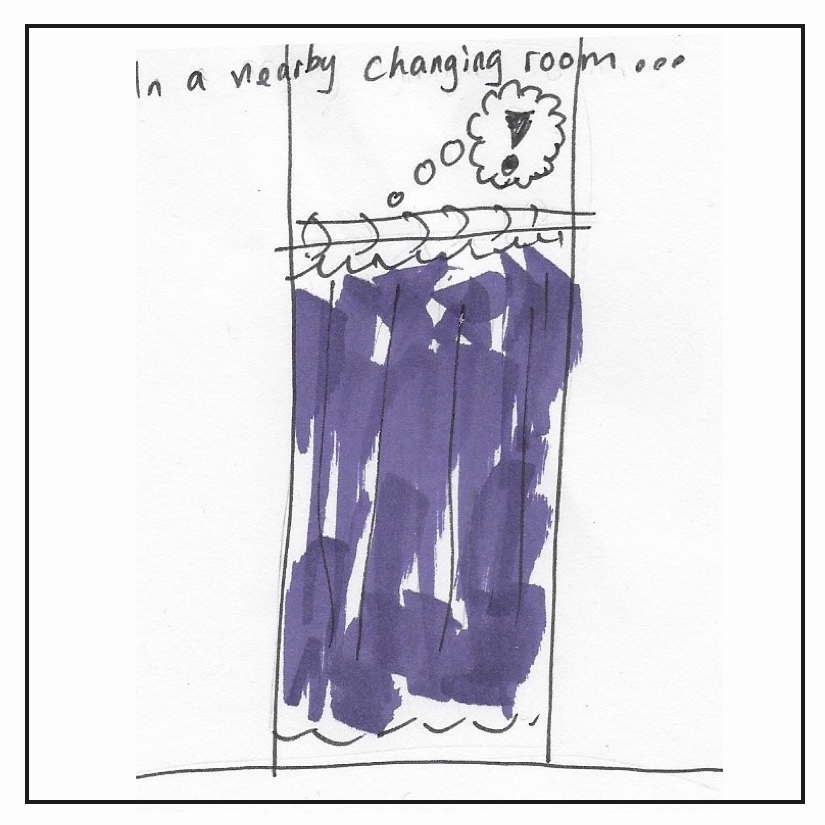 In a nearby changing room...
!